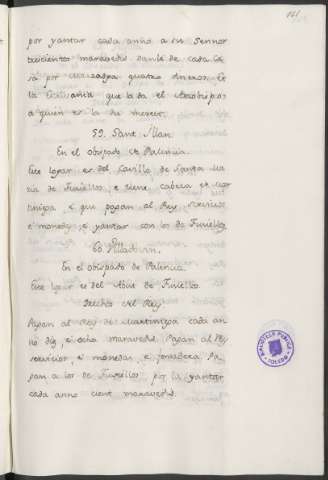 141
por yantar cada anno a su Sennor
trescientos maravedis danle de cada
sa por quatro dineros. Et
la que la da el Arzobispo
a quien es la su merced.
59. Sant Illan.
En el obispado de Palencia.
Este logar es del Cavillo de Santa Ma
ria de Fusiellos, e tiene cabeza de mar
tiniega e que pagan al Rey servicios
e moneda, e yantar con los de Fusiellos.
60.
En el obispado de Palencia.
Este logar es del Abat de Fusiellos.
Derechos del Rey.
Pagan al Rey de Martiniega cada an
no diez e ocho maravedis. Pagan al Rey
servicios e monedas, e fonsadera. Pa
gan a los de Fusiellos por la yantar
cada anno cient maravedis.
BIBLIOTECA PUBLICA
TOLEDO